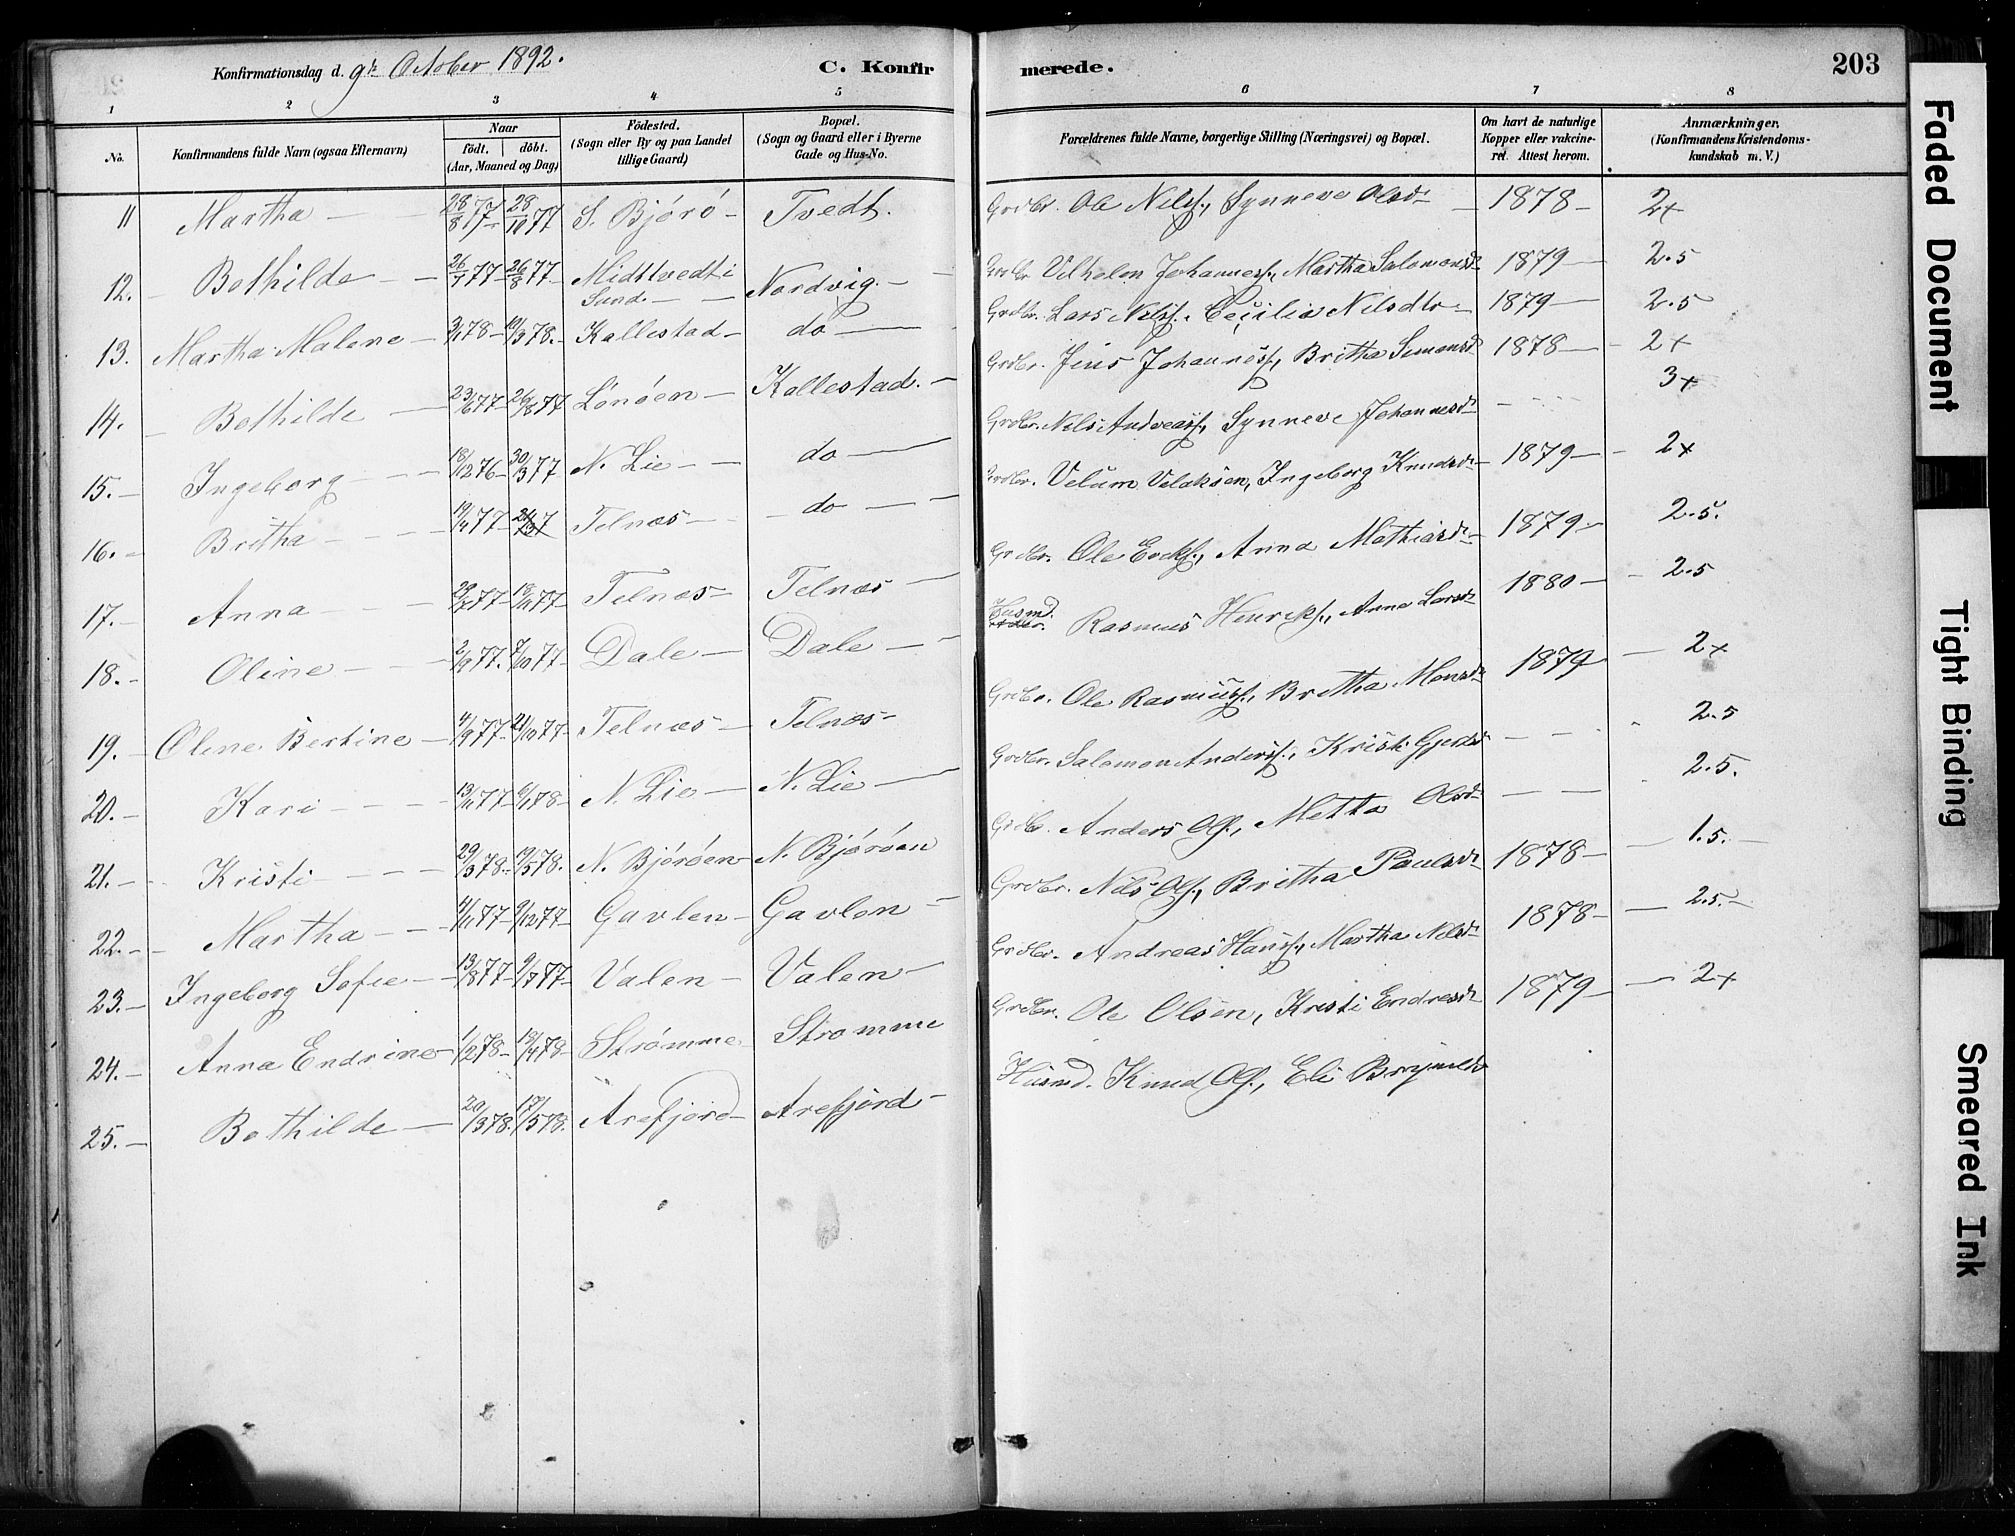 Konfirmationsdag d. 9de October 1892. C. Konfirmerede. 203
1 2 3 4 5 6 7 8
No. Konfirmandens fulde Navn (ogsaa Efternavn) Naar födt. döbt. (Aar, Maaned og Dag) Födested. (Sogn eller By og paa Landet tillige Gaard) Bopæl. (Sogn og Gaard eller i Byerne Gade og Hus-No. Forældrenes fulde Navne, borgerlige Stilling (Næringsvei) og Bopæl. Om havt de naturlige Kopper eller vakcineret. Attest herom. Anmærkninger. (Konfirmandens Kristendomskundskab m. V.)
11 Martha 28/8 77 28/10 77 S. Bjørø Tvedt. Grdbr. Ole Nilss., Synneve Olsdr 1878 2+
12. Bothilde 26/7 77 26/8 77 Midttvedt i Sund. Nordvig. Grdbr. Vilhelm Johanness., Martha Salomonsdr 1879 2.5
13. Martha Malene 3/1 78 10/3 78. Kallestad do Grdbr. Lars Nilss. Cecilia Nilsdtr 1879 2.5
14. Bothilde 23/6 77 26/8 77 Lønøen Kallestad. Grdbr. Jens Johanness., Britha Simonsdr 1878 2+
15. Ingeborg 18/12 76 30/3 77 N. Lie do Grdbr. Nils Andreass., Synneve Johannesdr 3+
16. Britha 19/4 77 Telnæs do Grdbr. Velum Velaksen, Ingeborg Knudsdr 1879 2+
17. Anna 29/7 77 18/11 77 Telnæs Telnæs Grdbr. Ole Ericks., Anna Mathiasdr 1879 2.5.
18. Oline 2/9 77. 7/10 77 Dale Dale Husmd. Rasmus Henriks., Anna Larsdr 1880 2.5
19. Olene Bertine 4/9 77 21/10 77 Telnæs Telnæs Grdbr. Ole Rasmuss., Britha Monsdr 1879 2+
20. Kari 13/11 77 6/1 78 N. Lie N. Lie Grdbr. Salomon Anderss., Kristi Gjertsdr 2.5
21. Kristi 29/3 78. 19/5 78. N. Bjørøen N. Bjørøen Grdbr. Anders Ols., Metta Olsdr 2.5.
22. Martha 4/11 77 9/12 77 Gavlen Gavlen Grdbr. Nils Ols., Britha Paulsdr 1878 1.5.
23. Ingeborg Sofie 13/8 77 9/7 77 Valen Valen Grdbr. Andreas Hanss., Martha Nilsdr 1878 2.5.
24. Anna Endrine 1/2 78 19/4 78 Strømme Strømme Grdbr. Ole Olsen, Kristi Endresdr 1879 2+
25. Bothilde 20/3 78. 17/5 78. Arefjord Arefjord Husmd. Knud Ols., Eli Brynildsdr
Faded Document
Tight Binding
Smeared Ink